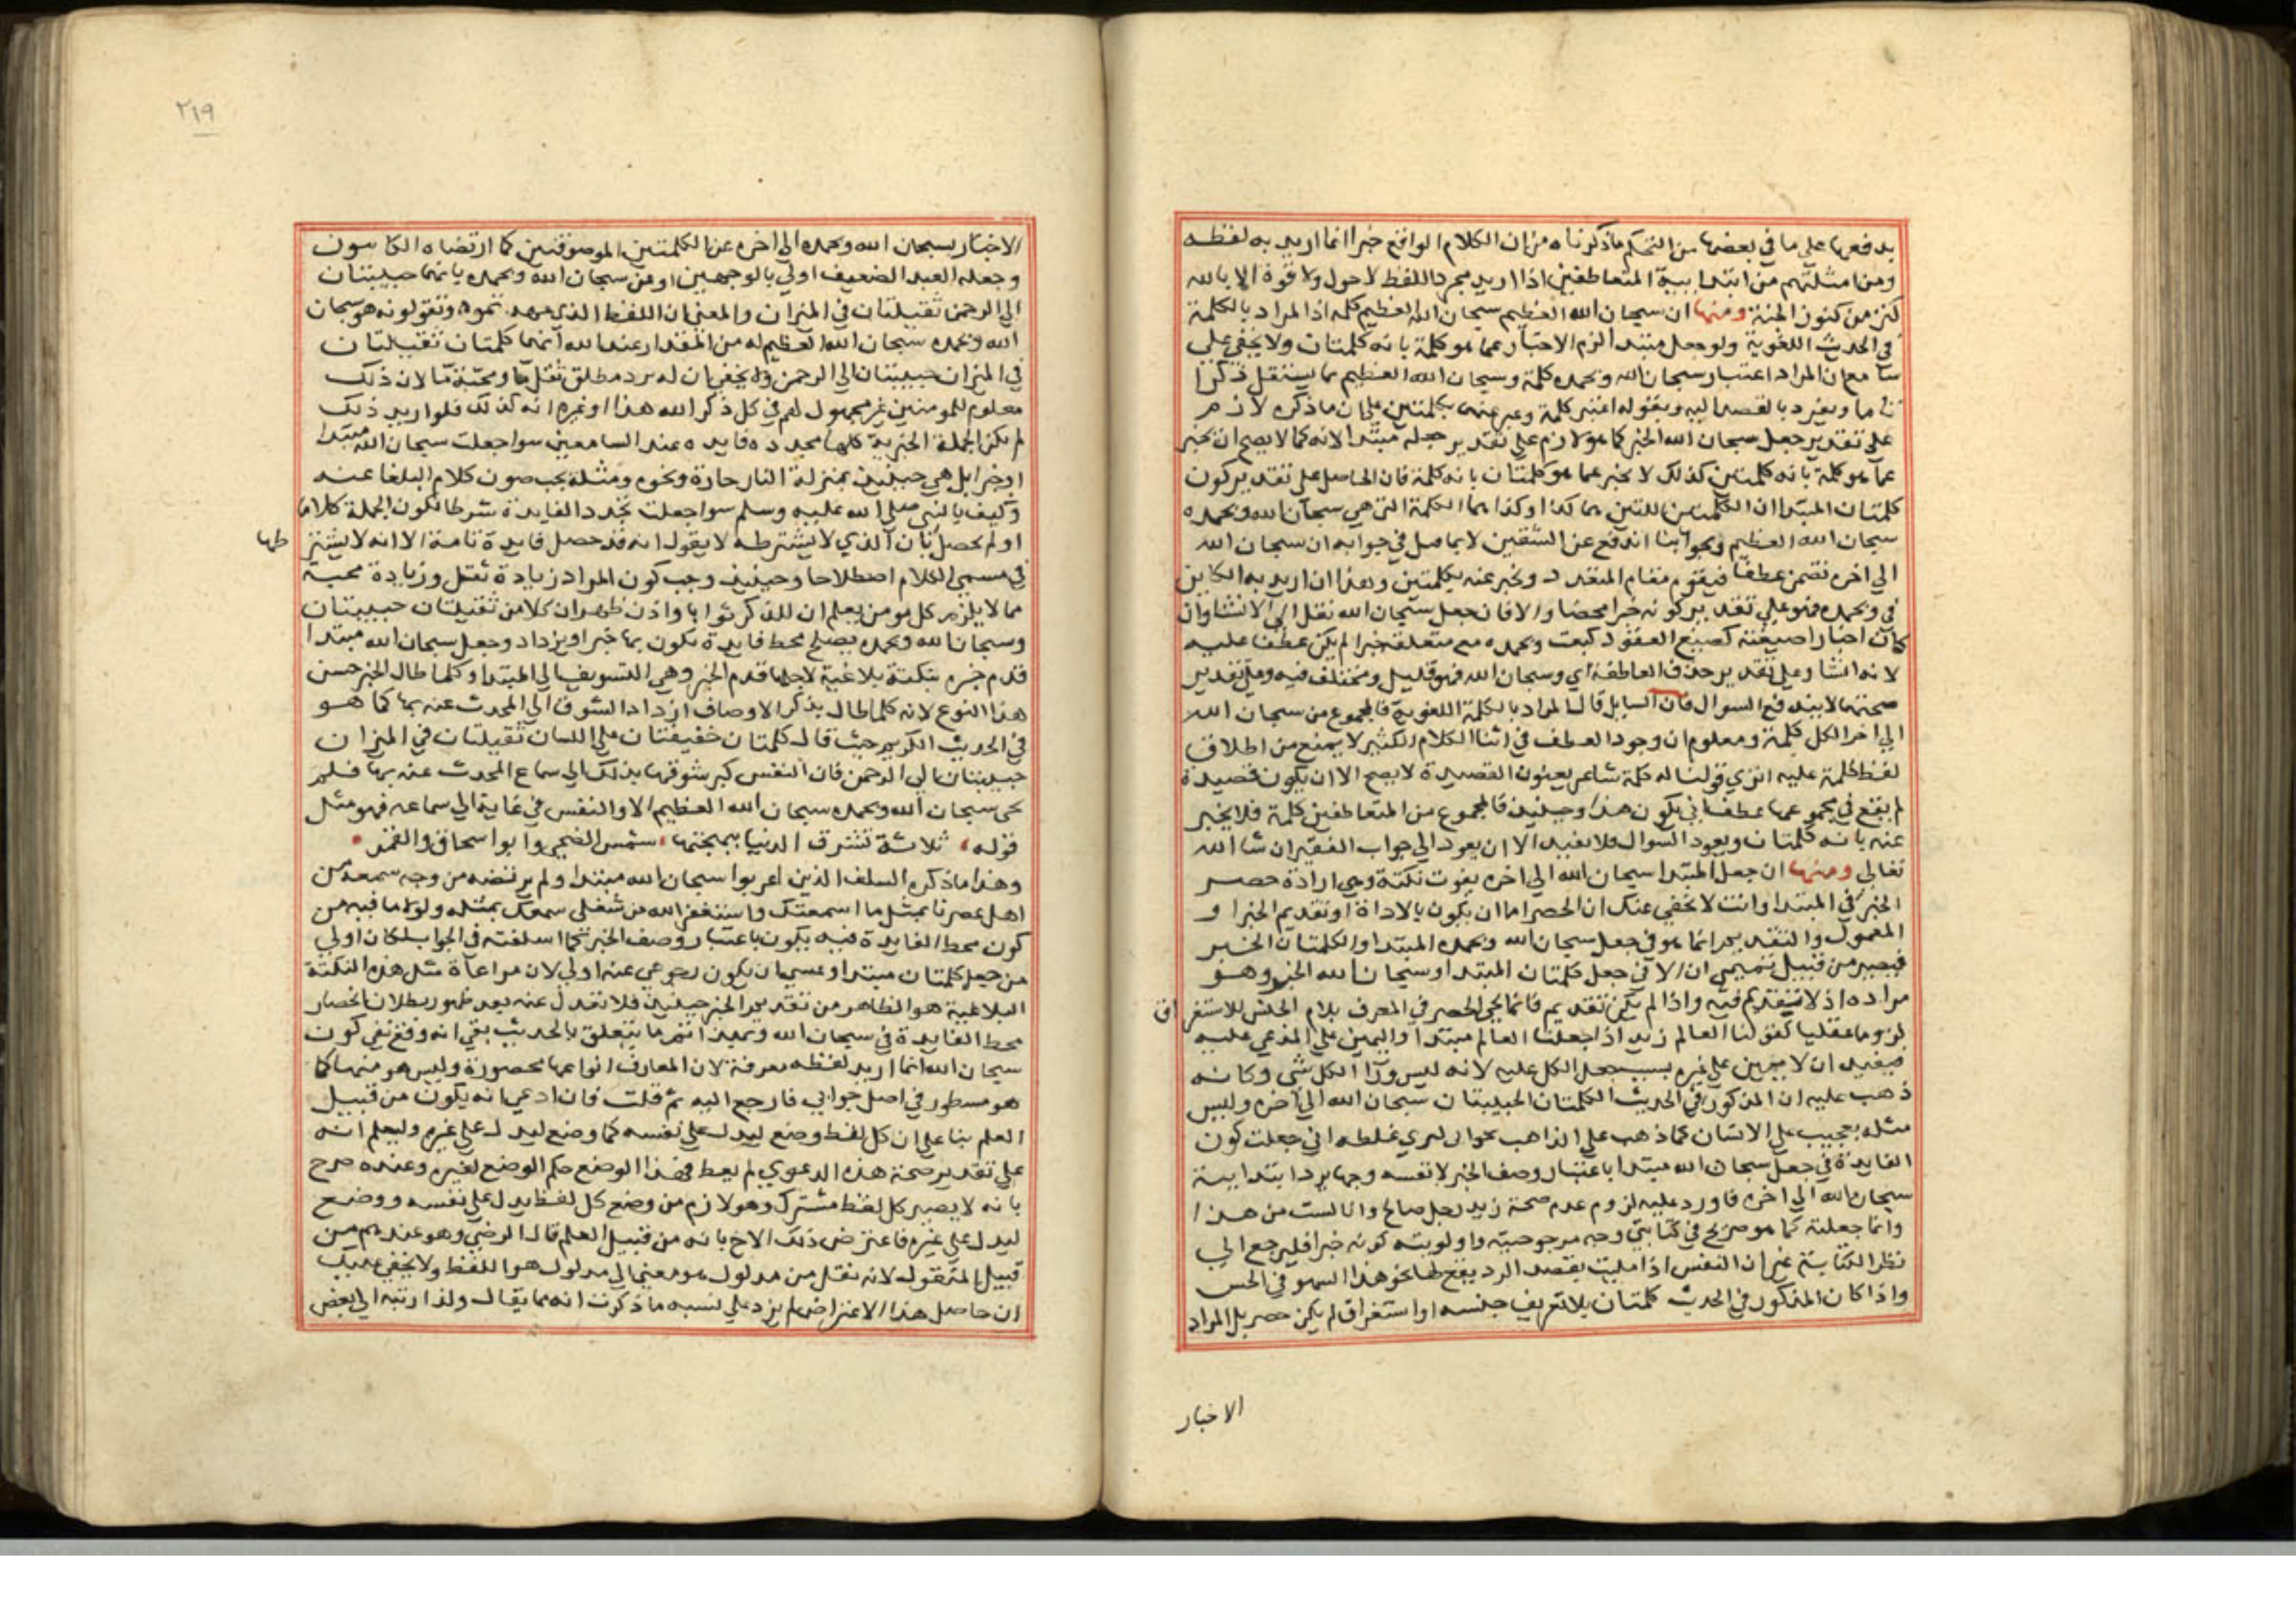 يدفعها على ما في بعضها من التحكم ماذكرناه من ان الكلام الواقع خبرا انما اريد به لفظه
ومن امثلتهم من ابتدا ببية المتعاطفين اذا اريد مجرد اللفظ لاحول ولا قوة الا بالله
كنز من كنوز الجنة ومنها ان سبحان الله العظيم سبحان الله العظيم كلمه اذا المراد بالكلمة
في الحديث اللغوية ولو جعل مبتدا لزم الاخبار عما هو كلمة بانه كلمتان ولا يخفى على
سامع ان المراد اعتبار سبحان الله وبحمده كلمة وسبحان الله العظيم مما يستقل ذكرا
تاما ويفرد بالقصد اليه وبقوله اعتبر كلمة وعبر عنهما بكلمتين على ان ماذكره لازم
على تقدير جعل سبحان الله الخبر كما هو لازم على تقدير جعله مبتدا لانه كما لا يصح ان يخبر
عما هو كلمة بانه كلمتين كذلك لا يخبر عما هو كلمتان بانه كلمة فان الحاصل على تقدير كون
كلمتان المبتدا ان الكلمتين اللتين هما كذا وكذا هما الكلمة التي هي سبحان الله وبحمده
سبحان الله العظيم وبجوابنا اندفع عن الشقين لا بما صل في جوابه ان سبحان الله
الى اخره تضمن عطفا فيقوم مقام المتعدد ويخبر عنه بكلمتين وهذا ان اريد به الكاين
في وبحمده فهو على تقدير كونه خبرا محضا والا فان جعل سبحان الله نقل الى الانشا وان
كان اخبارا صيغته كصيغ العقود كبعت وبحمده مع متعلقه خبرا لم يكن عطفا عليه
لانه انشا وعلى تقدير حذف العاطفة اي وسبحان الله فهو قليل ومختلف فيه وعلى تقدير
صحتها لا يندفع السوال فان السايل قال المراد بالكلمة اللغوية فالمجموع من سبحان الله
الى اخر الكل كلمة ومعلوم ان وجود العطف في اثنا الكلام الكثير لا يمنع من اطلاق
لفظ كلمة عليه اترى قولنا له كلمة شاعر يعنون القصيدة لا يصح الا ان يكون قصيدة
لم يقع في مجموعها عطف اني يكون هذا وحينئذ فالمجموع من المتعاطفين كلمة فلا يخبر
عنه بانه كلمتان ويعود السوال فلا يفيد الا ان يعود الى جواب الفقير ان شا الله
تعالى ومنها ان جعل المبتدا سبحان الله الى اخره يفوت نكتة وهي ارادة حصر
الخبر في المبتدا وانت لا يخفى عنك ان الحصر اما ان يكون بالاداة او تقديم الخبر او
المعمول والتقديم انما هو في جعل سبحان الله وبحمده المبتدا والكلمتان الخبر
فيصير من قبيل تميمي انا لا في جعل كلمتان المبتدا وسبحان الله الخبر وهو
مراده اذ لا تقديم فيه واذا لم يكن تقديم فانما يجي الحصر في المعرف بلام الجنس للاستغر اق
لزوما عقليا كقولنا العالم زيد اذا جعلنا العالم مبتدا واليمين على المدعي عليه
فيفيد ان لا يمين على غيره بسبب جعل الكل عليه لانه ليس ورآ الكل شي وكانه
ذهب عليه ان المذكور في الحديث الكلمتان الحبيبتان سبحان الله الى اخره وليس
مثله بعجيب على الانسان كما ذهب على الذاهب نحوا لى لدي غلطه اني جعلت كون
الفايدة في جعل سبحان الله مبتدا باعتبار وصف الخبر لا نفسه وجها يرد ابتداييه
سبحان الله الى اخره فاورد عليه لزوم عدم صحة زيد رجل صالح وانا لست من هذا
وانما جعلته كما هو صريح في كتابتي وجه مرجوحيته واولويته كونه خبرا فليرجع الى
نظر الكتابة غير ان النفس اذا مليت بقصد الرد يقع لها نحو هذا السهو في الحس
واذا كان المذكور في الحديث كلمتان بلا تعريف جنسه او استغراق لم يكن حصر بل المراد
الاخبار
٢١٩
الاخبار بسبحان الله وبحمده الى اخره عن الكلمتين الموصوفتين كما ارتضاه الكاسون
وجعله العبد الضعيف اولى بالوجهين او من سبحان الله وبحمده بانهما حبيبتان
الى الرحمن ثقيلتان في الميزان والمعنى ان اللفظ الذي وتقولونه هو سبحان
الله وبحمده سبحان الله العظيم له من المقدار عند الله انهما كلمتان ثقيلتان
في الميزان حبيبتان الى الرحمن ولا يخفى ان له يرد مطلق ثقل ما ومحبة ما لان ذلك
معلوم للمومنين غير مجهول لهم في كل ذكر الله هذا او غيره انه كذلك فلو اريد ذلك
لم يكن الجملة الخبرية كلها مجددة فايدة عند السامعين سوا جعلت سبحان الله مبتدا
او خبرا بل هي حينئذ بمنزلة النار حارة ونحوه ومثله يجب صون كلام البلغا عنه
وكيف بالنبي صلى الله عليه وسلم سوا جعلت تجدد الفايدة شرطا لكون الجملة كلاما
او لم يحصل بان الذي لا يشترطه لا يقول انه قد حصل فايدة تامة الا انه لا يشتر طها
في مسمى الكلام اصطلاحا وحينئذ وجب كون المراد زيادة ثقل وزيادة محبة
مما لا يلزم كل مومن يعلم ان للذكر ثوابا واذن ظهر ان كلا من ثقيلتان حبيبتان
وسبحان الله وبحمده يصلح محط فايدة يكون بها خبرا ويزداد وجعل سبحان الله مبتدا
قدم خبره بنكتة بلاغية لاجلها قدم الخبر وهي التسويف الى المبتدا وكلما طال الخبر حسن
هذا النوع لانه كلما طال بذكر الاوصاف ازداد الشوق الى المحدث عنه بها كما هو
في الحديث الكريم حيث قال كلمتان خفيفتان على اللسان ثقيلتان في الميزان
حبيبتان الى الرحمن فان النفس كبر شوقها بذلك الى سماع المحدث عنه بها فلم
يجى سبحان الله وبحمده سبحان الله العظيم الا والنفس في غاية الى سماعه فهو مثل
قوله، ثلاثة تشرق الدنيا ببهجتها، شمس الضحى وابو اسحاق والقمر
وهذا ما ذكره السلف الذين اعربوا سبحان الله مبتدا ولم يرتضه من وجه سمعه من
اهل عصرنا بمثل ما اسمعتك واستغفر الله من شغلى سمعك بمثله ولولا ما فيه من
كون محط الفايدة فيه يكون باعتبار وصف الخبر كما اسلفته في الجواب لكان اولى
من جعل كلمتان مبتدا وعسى ان يكون رجوعي عنه اولى لان مراعاة مثل هذه النكتة
البلاغية هو الظاهر من تقديم الخبر حينئذ فلا تعدل عنه بعد ظهور بطلان انحصار
محط الفايدة في سبحان الله وبهذا انتهى ما يتعلق بالحديث بقي انه وقع نفي كون
سبحان الله انما اريد لفظه معرفة لان المعارف انواعها محصورة وليس هو منها كما
هو مسطور في اصل جوابي فارجع اليه ثم قلت فان ادعي انه يكون من قبيل
العلم بنا على ان كل لفظ وضع ليدل على نفسه كما وضع ليدل على غيره وليعلم انه
على تقدير صحة هذه الدعوى لم يعط هذا الوضع حكم الوضع لغيره وعنده صرح
بانه لا يصير كل لفظ مشترك وهو لازم من وضع كل لفظ يدل على نفسه ووضع
ليدل على غيره فاعترض ذلك الاخ بانه من قبيل العلم قال الرضي وهو عندهم من
قبيل المنقول لانه نقل من مدلول هو معنى الى مدلول هو اللفظ ولا يخفى عليك
ان حاصل هذا الاعتراض لم يزد على نسبه ماذكرت انه مما يقال ولذا رتبه الى بعض